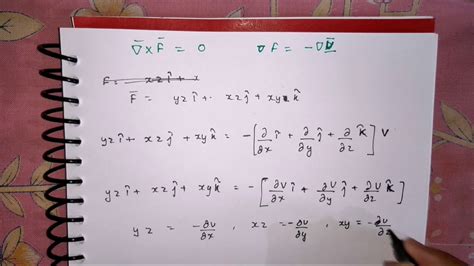 ∇̄ × F̄ = 0   ▽F = -∇V
F = xzî + x
F̄ = yzî + xzĵ + xyk̂
yzî + xzĵ + xyk̂ = -[∂/∂x î + ∂/∂y ĵ + ∂/∂z k̂] V
yzî + xzĵ + xyk̂ = -[∂V/∂x î + ∂V/∂y ĵ + ∂V/∂z k̂]
yz = -∂V/∂x , xz = -∂V/∂y , xy = -∂V/∂z